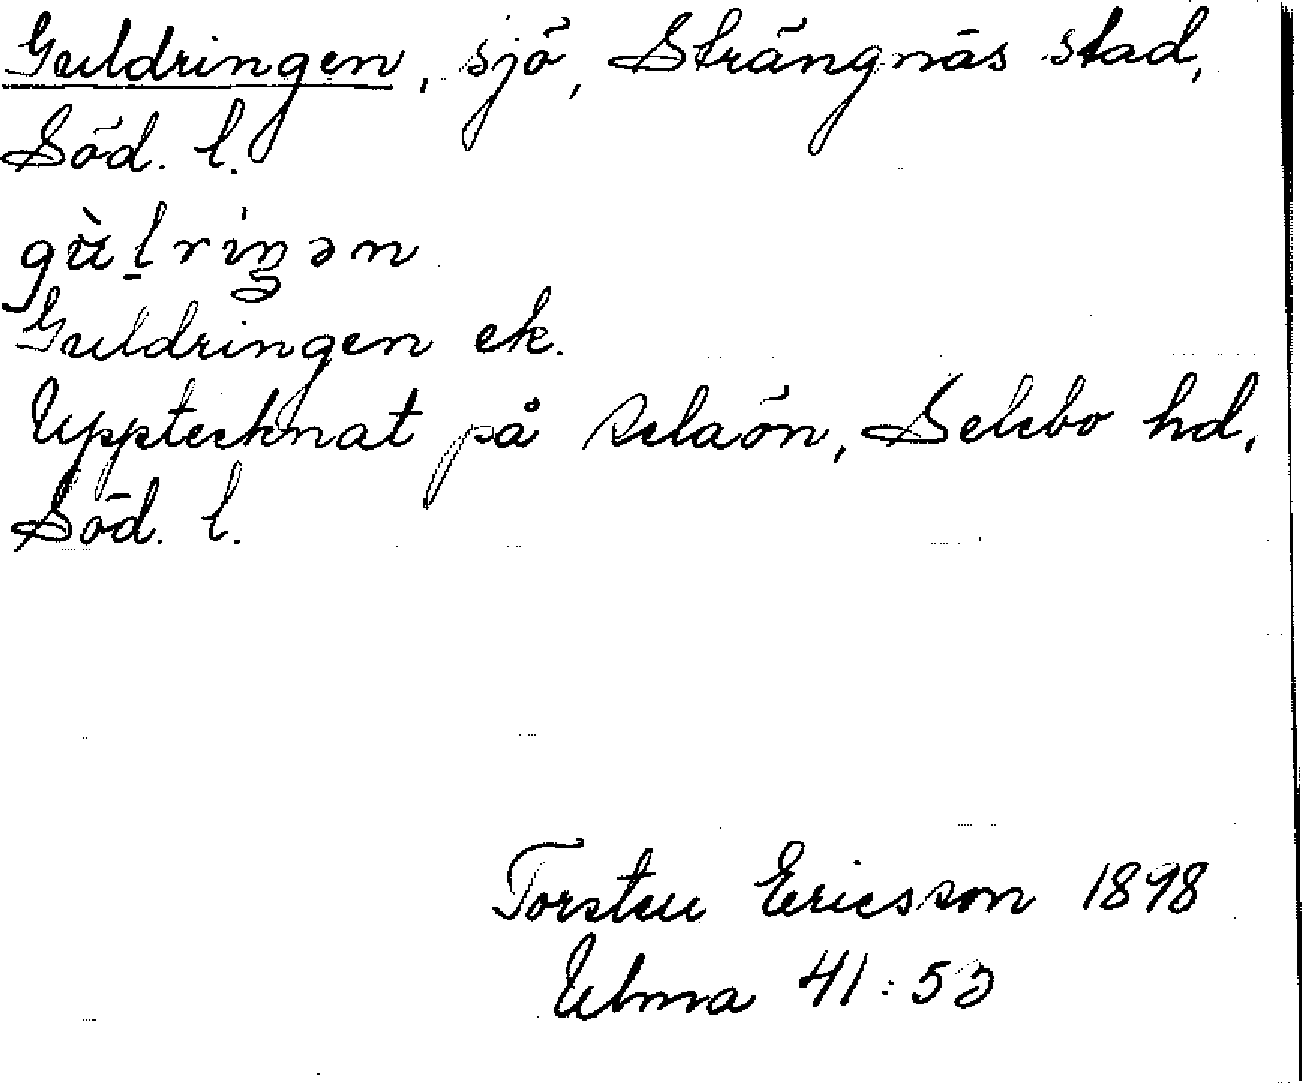 Guldringen, sjö, Strängnäs stad,
Söd. l.
gù̀l̠riŋən
Guldringen ek.
Upptecknat på Selaön, Selebo hd,
Söd. l.
Torsten Ericsson 1898
Ulma 41:53